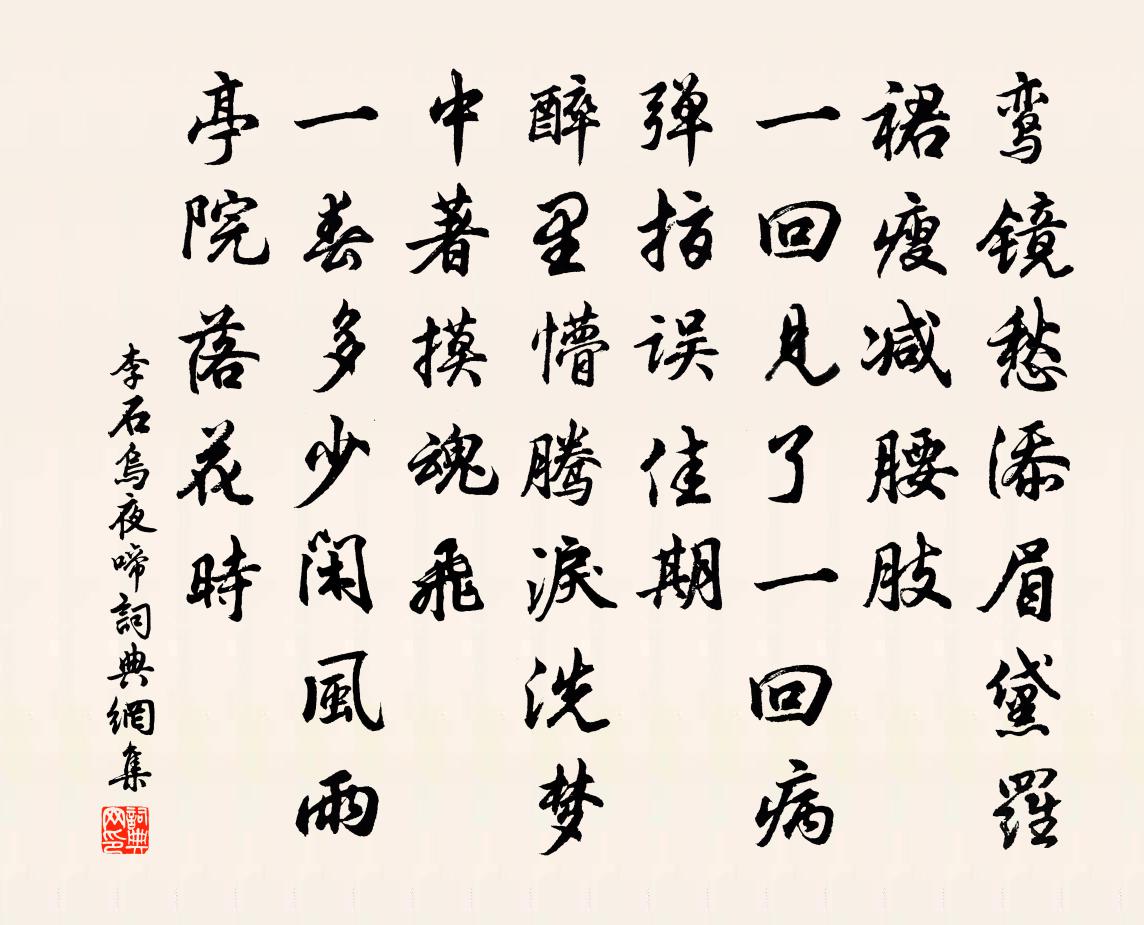 鸾镜愁添眉黛羅
裙瘦减腰肢
一回見了一回病
弹指误佳期
醉里懵腾淚洗梦
中著摸魂飛
一春多少闲風雨
亭院落花時
李石烏夜啼詞典網集
詞典网印